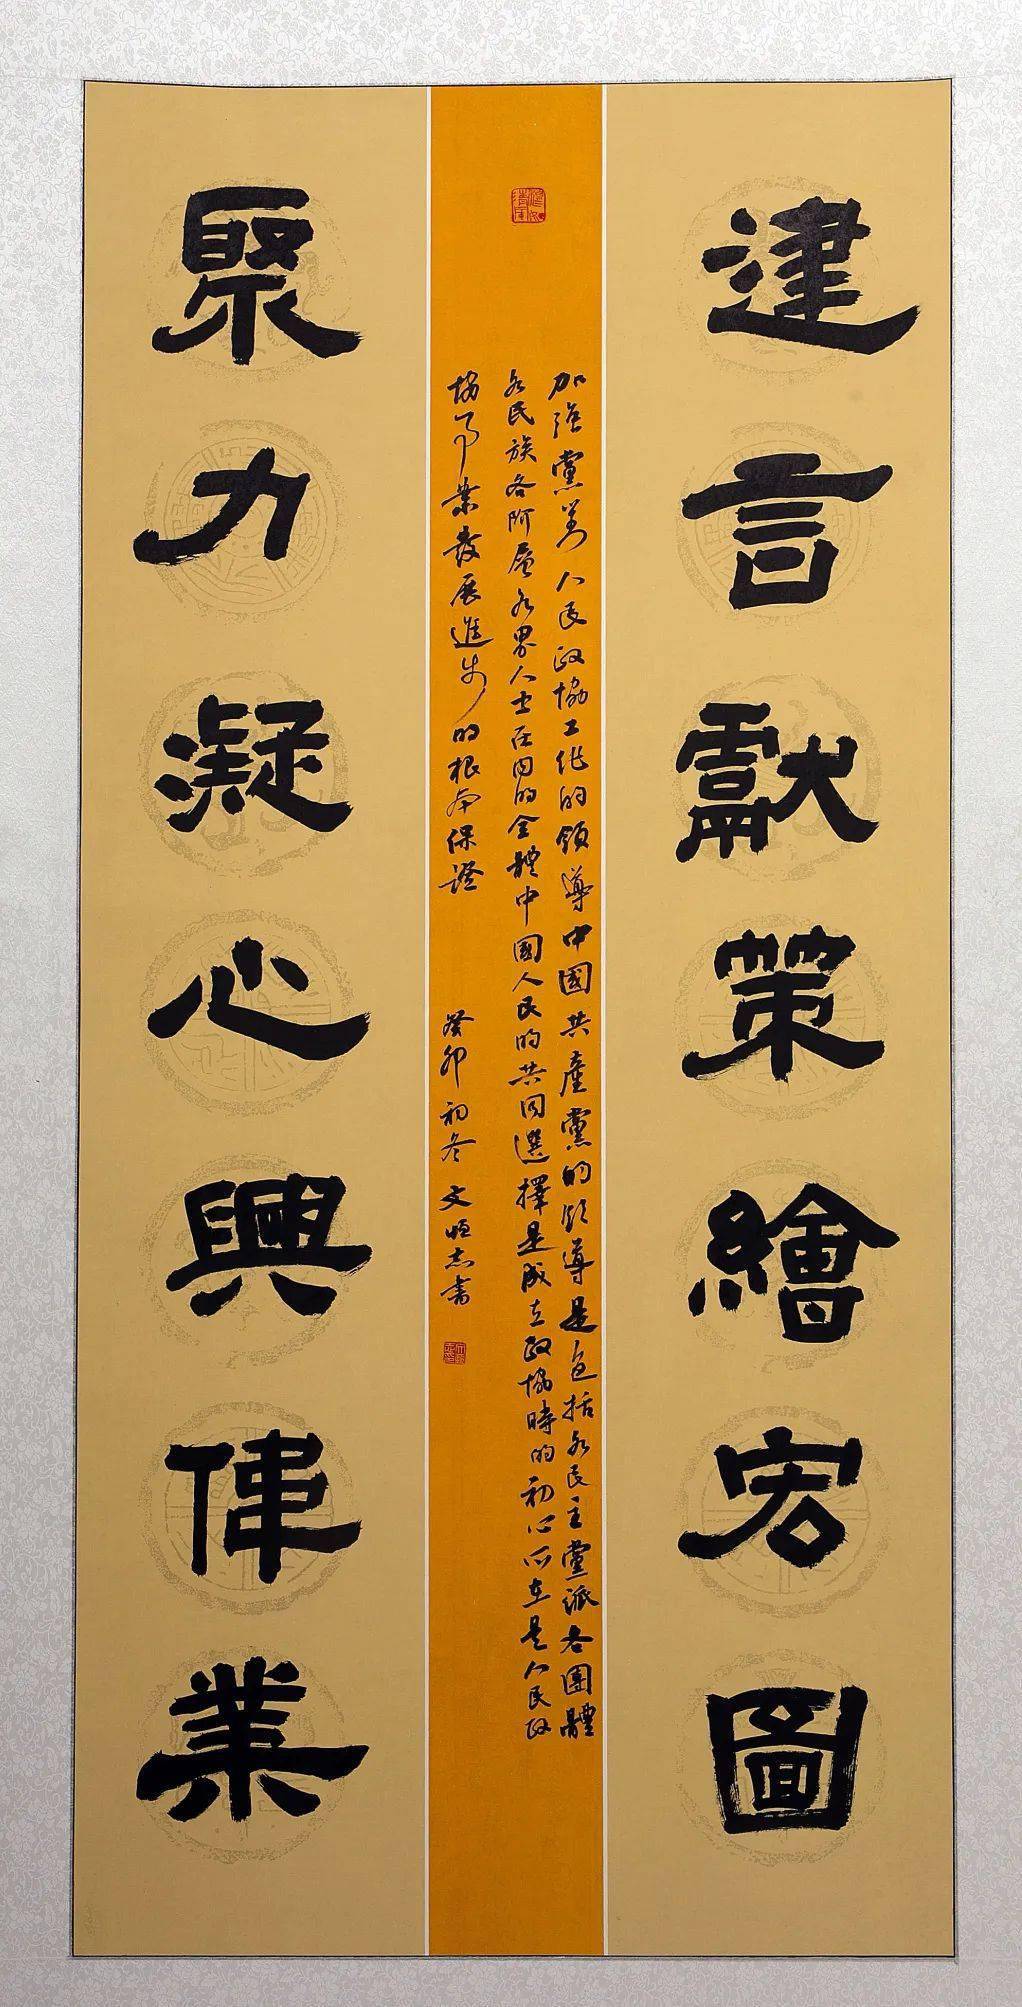 建言獻策繪宏圖
加強黨對人民政協工作的領導中國共產黨的領導是包括各民主黨派各團體
各民族各階層各界人士在內的全體中國人民的共同選擇是成立政協時的初心所在是人民政
協事業發展進步的根本保證
癸卯初冬 文恒志書
聚力凝心興偉業